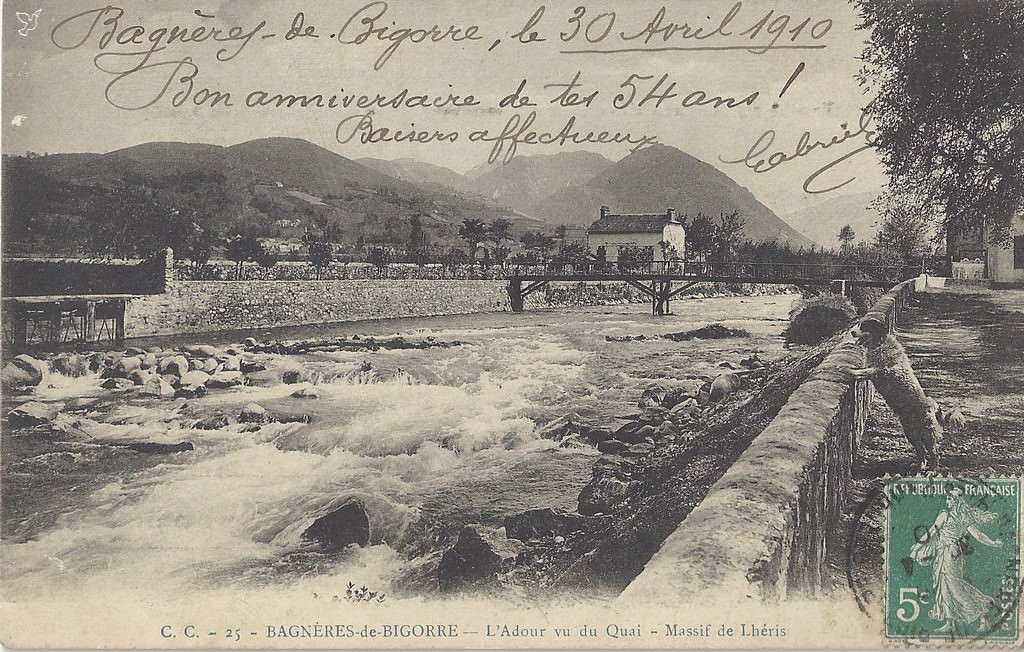 Bagnères-de-Bigorre, le 30 Avril 1910
Bon anniversaire de tes 54 ans !
Baisers affectueux
Gabriel
REPUBLIQUE FRANÇAISE
5c
POSTES
C. C. - 25 - BAGNÈRES-de-BIGORRE — L'Adour vu du Quai - Massif de Lhéris